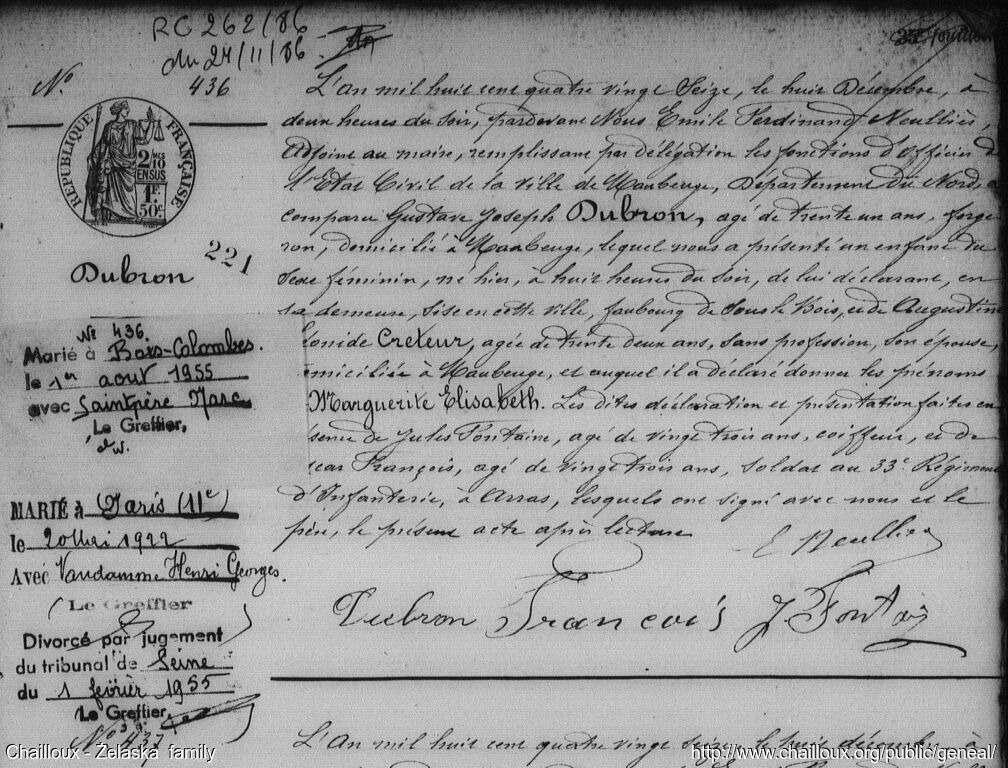 RC 262/86
du 24/11/86
feuillet
No. 436
RÉPUBLIQUE FRANÇAISE
2/10
EN SUS
1F.
50c
221
Dubron
No 436.
Marié à Bois-Colombes.
le 1er aout 1955
avec Saintpère Marc
Le Greffier,
MARIÉ à Paris (11e)
le 20 Mai 1922
Avec Vandamme Henri Georges.
Le Greffier
Divorcé par jugement
du tribunal de Seine
du 1 février 1955
Le Greffier
No 437
L'An mil huit cent quatre vingt Seize, le huit Décembre, à
deux heures du soir, pardevant Nous Emile Ferdinand Neulliès,
Adjoint au maire, remplissant par délégation les fonctions d'Officier de
l'Etat Civil de la ville de Maubeuge, Département du Nord, a
comparu Gustave Joseph Dubron, agé de trente un ans, forge
ron, domicilié à Maubeuge, lequel nous a présenté un enfant du
Sexe féminin, né hier, à huit heures du soir, de lui déclarant, en
sa demeure, sise en cette ville, faubourg de Sous le Bois, et de Augustine
Léonide Creteur, agée de trente deux ans, sans profession, son épouse,
omiciliée à Maubeuge, et auquel il a déclaré donner les prénoms
Marguerite Elisabeth. Les dites déclaration et présentation faites en
sence de Jules Fontaine, agé de vingt trois ans, coiffeur, et de
scar François, agé de vingt trois ans, soldat au 33e Régiment
d'Infanterie, à Arras, lesquels ont signé avec nous et le
père, le présent acte après lecture
E Neulliès
Dubron François J. Fontai
L'An mil huit cent quatre vingt Seize, le huit décembre à
Chailloux - Zelaska family
http://www.chailloux.org/public/geneal/